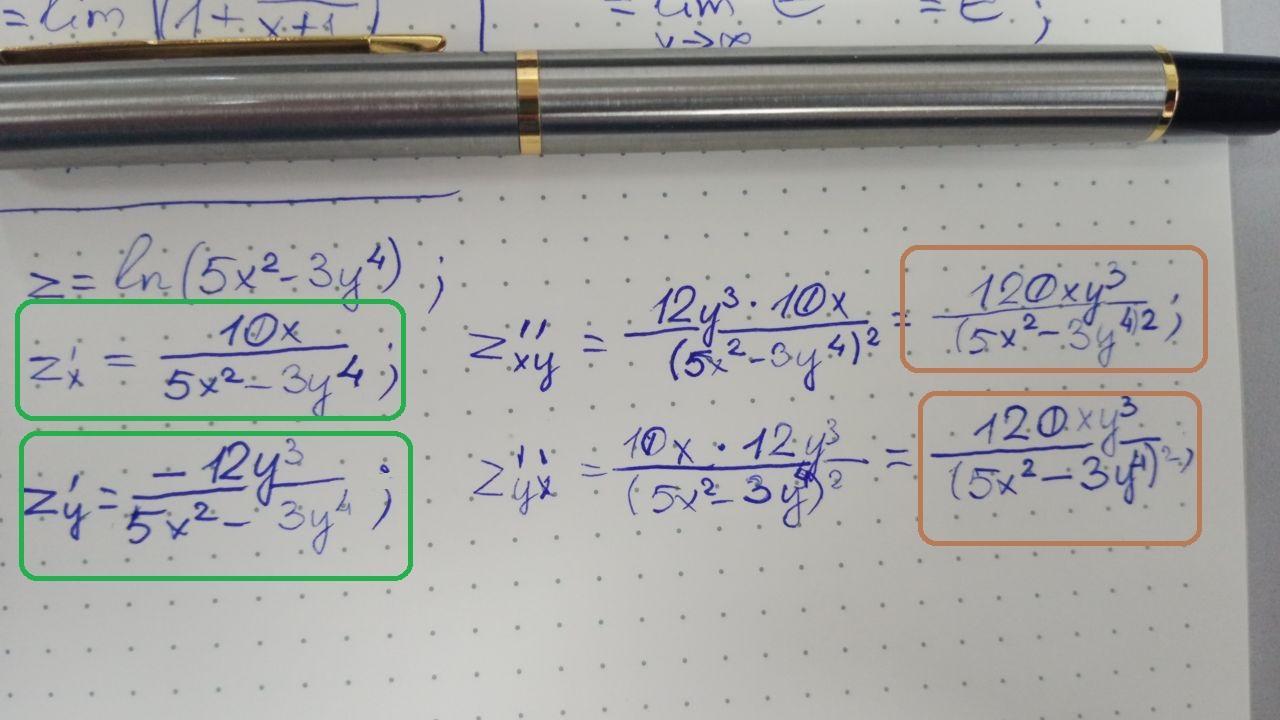 = lim (1 + x+1)
= lim e = e ;
v→∞
z = ln(5x² - 3y⁴) ;
z'ₓ = 10x / (5x² - 3y⁴) ;
z'ᵧ = -12y³ / (5x² - 3y⁴) ;
z''xy = 12y³ · 10x / (5x² - 3y⁴)² = 120xy³ / (5x² - 3y⁴)² ;
z''yx = 10x · 12y³ / (5x² - 3y⁴)² = 120xy³ / (5x² - 3y⁴)² ;